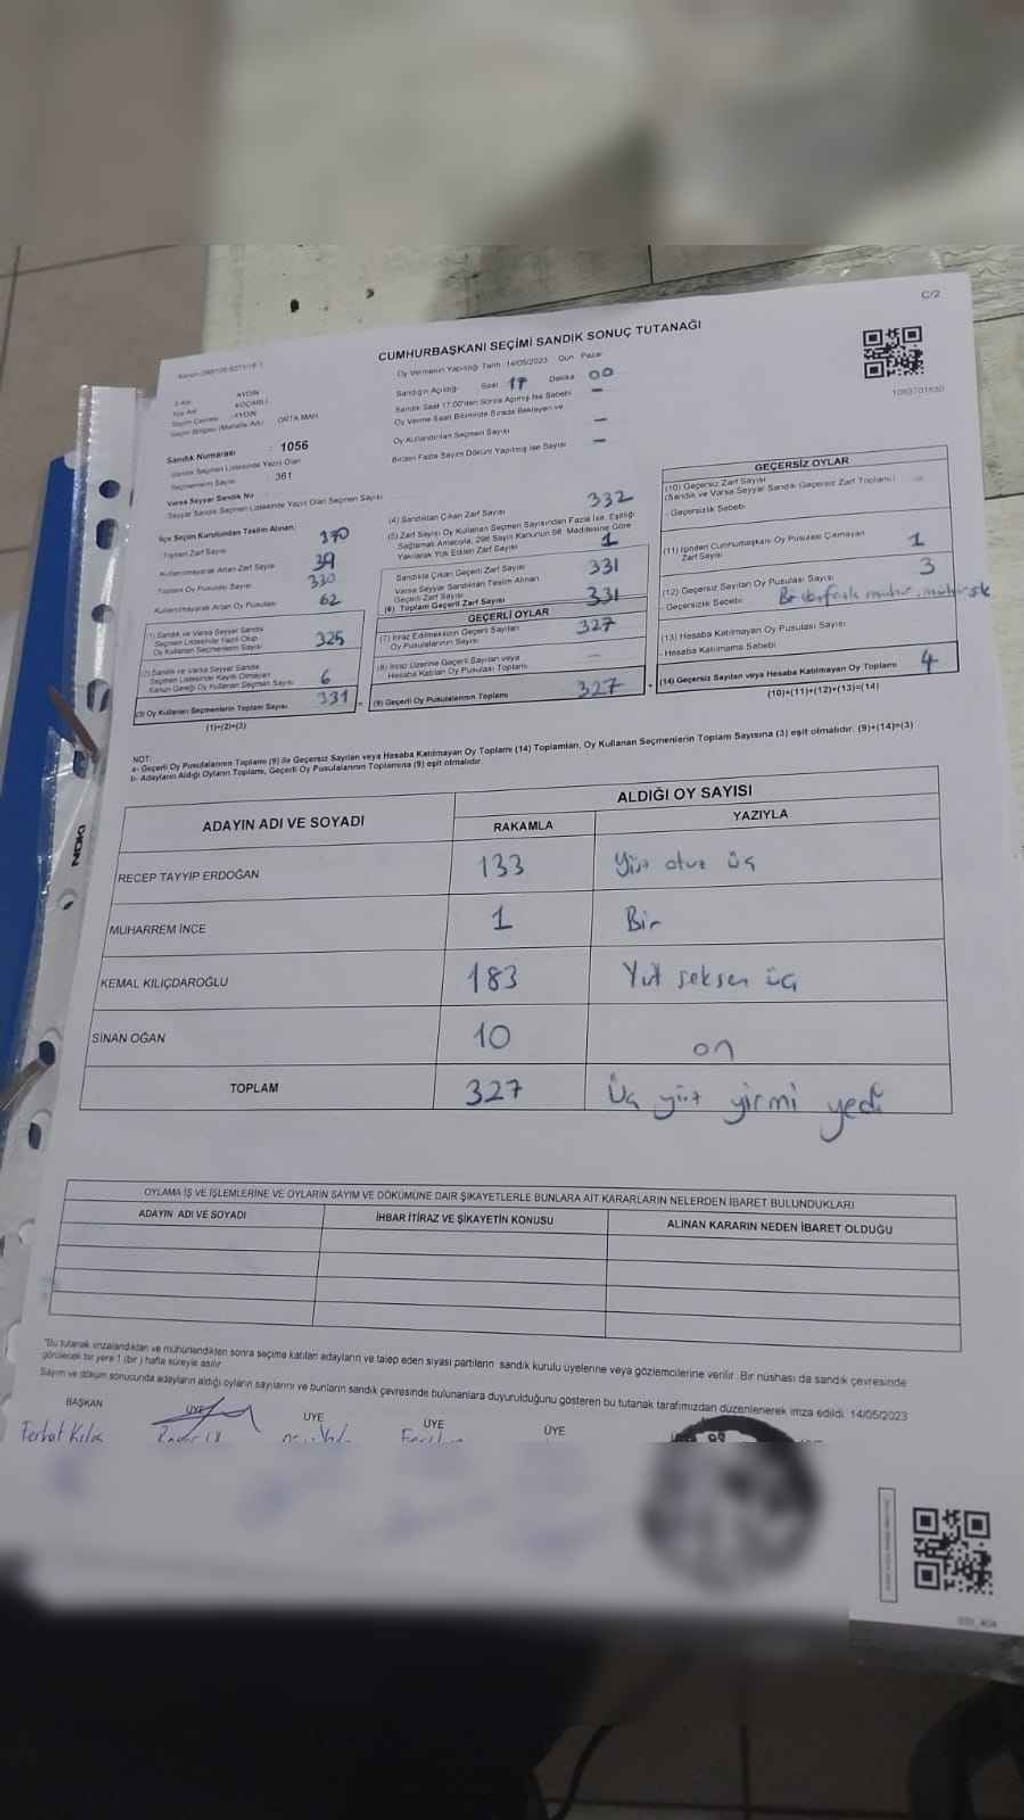 C/2
CUMHURBAŞKANI SEÇİMİ SANDIK SONUÇ TUTANAĞI
Oy Vermenin Yapıldığı Tarih 14/05/2023 Gün Pazar
Sandığın Açıldığı Saat 17 Dakika 00
Sandık Saat 17:00'den Sonra Açılmış İse Sebebi –
Oy Verme Saati Bitiminde Sırada Bekleyen ve
Oy Kullandırılan Seçmen Sayısı –
Birden Fazla Sayım Döküm Yapılmış İse Sayısı –
AYDIN
KOÇARLI
AYDIN
ORTA MAH
Sandık Numarası : 1056
Sandık Seçmen Listesinde Yazılı Olan
Seçmenlerin Sayısı : 361
Varsa Seyyar Sandık No
Seyyar Sandık Seçmen Listesinde Yazılı Olan Seçmen Sayısı
İlçe Seçim Kurulundan Teslim Alınan:
Toplam Zarf Sayısı 370
Kullanılmayarak Artan Zarf Sayısı 39
Toplam Oy Pusulası Sayısı
Kullanılmayarak Artan Oy Pusulası 62
(1) Sandık ve Varsa Seyyar Sandık
Seçmen Listesinde Yazılı Olup
Oy Kullanan Seçmenlerin Sayısı 325
(2) Sandık ve Varsa Seyyar Sandık
Seçmen Listesinde Kayıtlı Olmayan
Kanun Gereği Oy Kullanan Seçmen Sayısı 6
(3) Oy Kullanan Seçmenlerin Toplam Sayısı 331
(1)+(2)=(3)
(4) Sandıktan Çıkan Zarf Sayısı 332
(5) Zarf Sayısı Oy Kullanan Seçmen Sayısından Fazla İse, Eşitliği
Sağlamak Amacıyla, 298 Sayılı Kanunun 98. Maddesine Göre
Yakılarak Yok Edilen Zarf Sayısı 1
Sandıkta Çıkan Geçerli Zarf Sayısı 331
Varsa Seyyar Sandıktan Teslim Alınan
Geçerli Zarf Sayısı
(6) Toplam Geçerli Zarf Sayısı 331
GEÇERLİ OYLAR
(7) İtiraz Edilmeksizin Geçerli Sayılan
Oy Pusulalarının Sayısı 327
(8) İtiraz Üzerine Geçerli Sayılan veya
Hesaba Katılan Oy Pusulası Toplamı –
(9) Geçerli Oy Pusulalarının Toplamı 327
1093701630
GEÇERSİZ OYLAR
(10) Geçersiz Zarf Sayısı
(Sandık ve Varsa Seyyar Sandık Geçersiz Zarf Toplamı)
Geçersizlik Sebebi
(11) İçinden Cumhurbaşkanı Oy Pusulası Çıkmayan
Zarf Sayısı 1
(12) Geçersiz Sayılan Oy Pusulası Sayısı 3
Geçersizlik Sebebi
(13) Hesaba Katılmayan Oy Pusulası Sayısı
Hesaba Katılmama Sebebi
(14) Geçersiz Sayılan veya Hesaba Katılmayan Oy Toplamı 4
(10)+(11)+(12)+(13)=(14)
NOT:
a- Geçerli Oy Pusulalarının Toplamı (9) ile Geçersiz Sayılan veya Hesaba Katılmayan Oy Toplamı (14) Toplamları, Oy Kullanan Seçmenlerin Toplam Sayısına (3) eşit olmalıdır. (9)+(14)=(3)
b- Adayların Aldığı Oyların Toplamı, Geçerli Oy Pusulalarının Toplamına (9) eşit olmalıdır.
ADAYIN ADI VE SOYADI ALDIĞI OY SAYISI
RAKAMLA YAZIYLA
RECEP TAYYİP ERDOĞAN 133 Yüz otuz üç
MUHARREM İNCE 1 Bir
KEMAL KILIÇDAROĞLU 183 Yüz seksen üç
SİNAN OĞAN 10 on
TOPLAM 327 Üç yüz yirmi yedi
OYLAMA İŞ VE İŞLEMLERİNE VE OYLARIN SAYIM VE DÖKÜMÜNE DAİR ŞİKAYETLERLE BUNLARA AİT KARARLARIN NELERDEN İBARET BULUNDUKLARI
ADAYIN ADI VE SOYADI İHBAR İTİRAZ VE ŞİKAYETİN KONUSU ALINAN KARARIN NEDEN İBARET OLDUĞU
"Bu tutanak imzalandıktan ve mühürlendikten sonra seçime katılan adayların ve talep eden siyasi partilerin sandık kurulu üyelerine veya gözlemcilerine verilir. Bir nüshası da sandık çevresinde
görülecek bir yere 1 (bir) hafta süreyle asılır.
Sayım ve döküm sonucunda adayların aldığı oyların sayılarını ve bunların sandık çevresinde bulunanlara duyurulduğunu gösteren bu tutanak tarafımızdan düzenlenerek imza edildi. 14/05/2023
BAŞKAN ÜYE ÜYE ÜYE ÜYE
Ferhat
NOKI